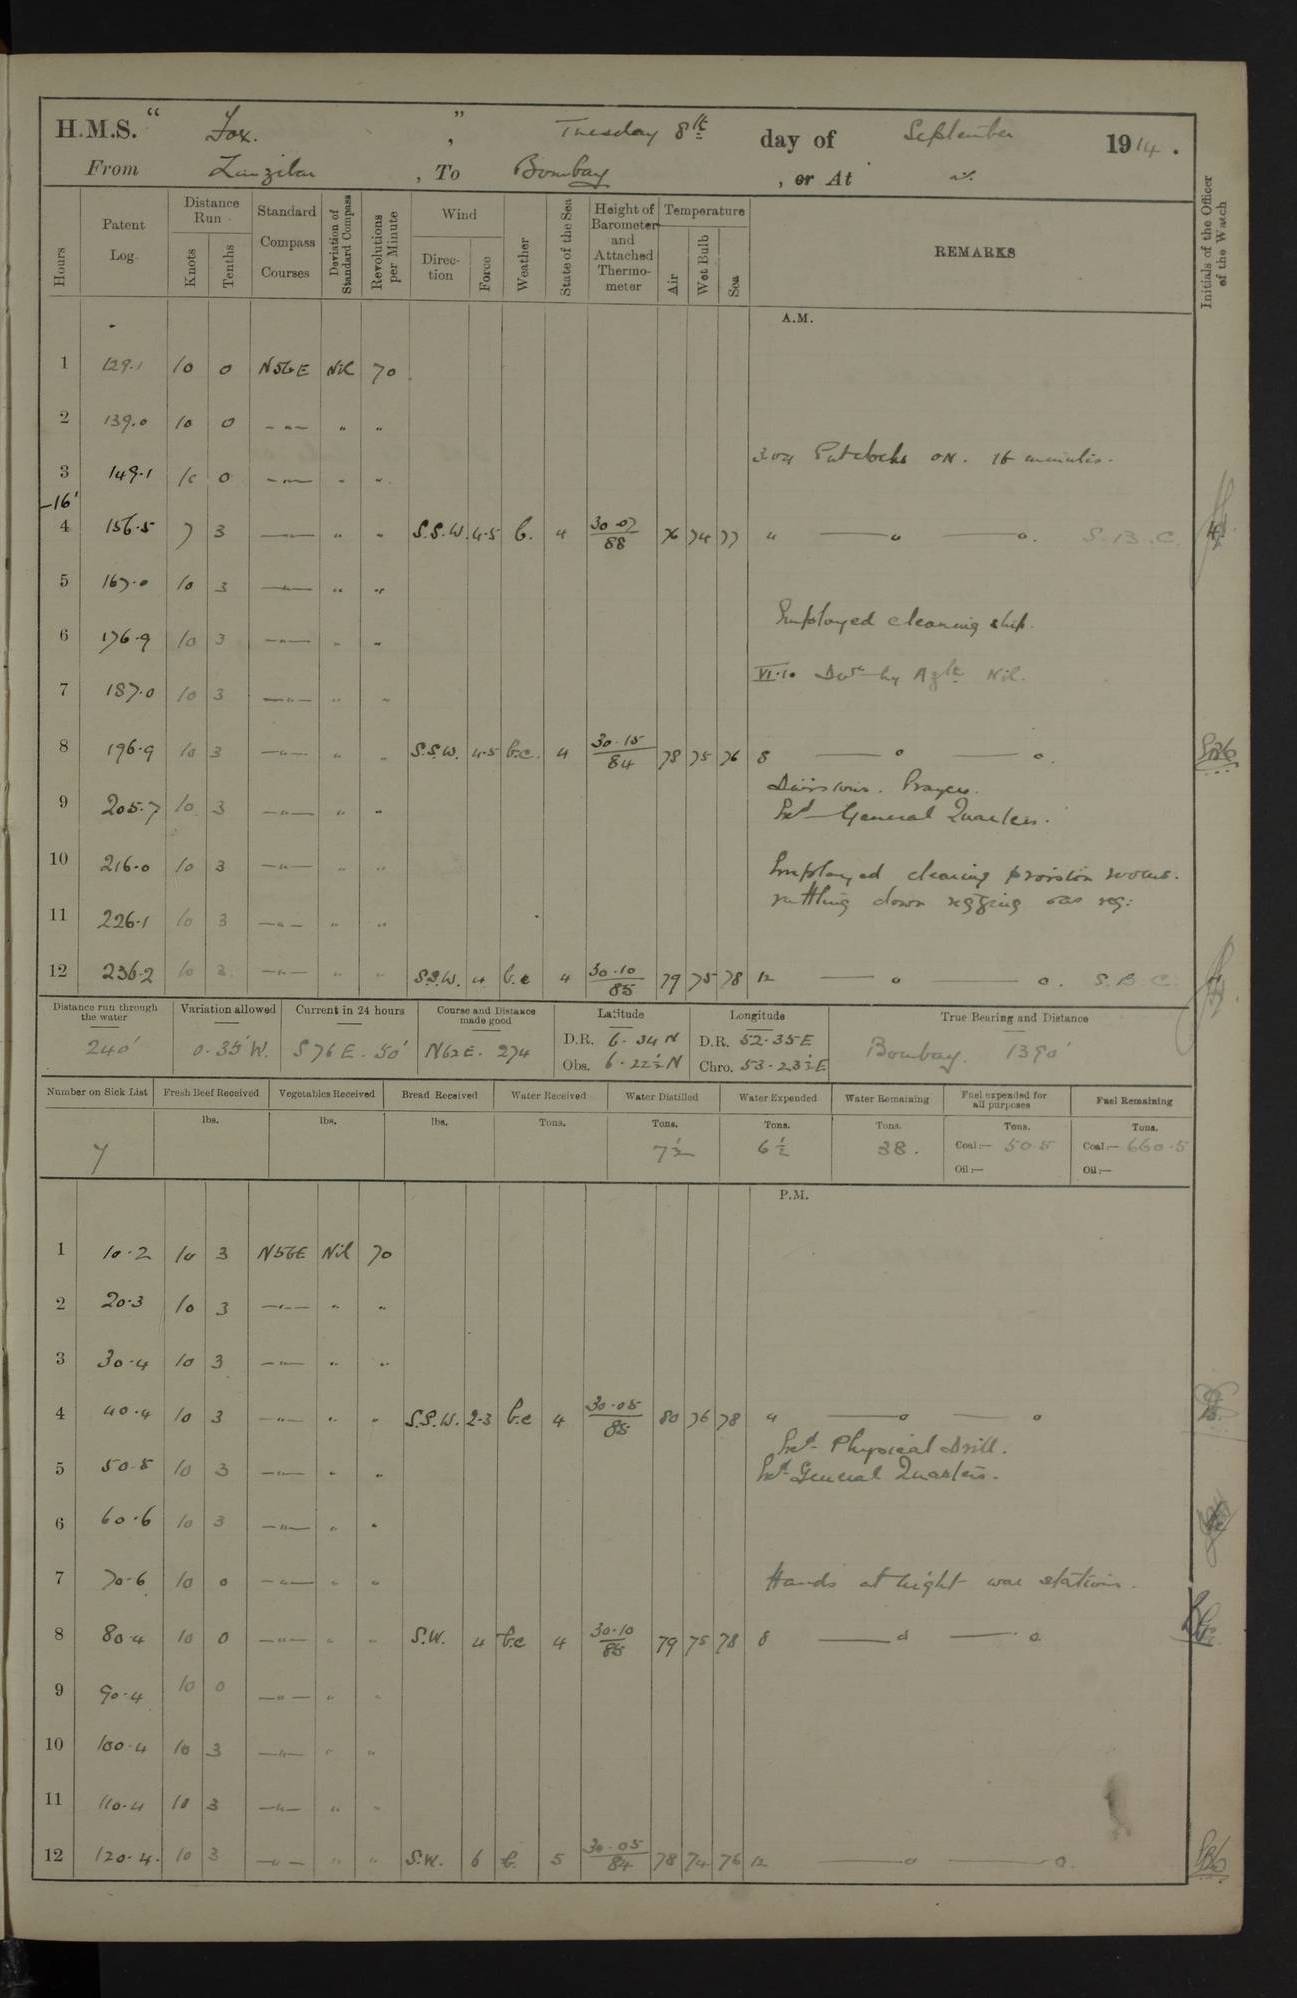 H.M.S. " Fox. " , Tuesday 8th day of September 1914.
From Zanzibar , To Bombay , or At
Hours
Patent Log.
Distance Run
Knots Tenths
Standard Compass Courses
Deviation of Standard Compass
Revolutions per Minute
Wind
Direction Force
Weather
State of the Sea
Height of Barometer and Attached Thermometer
Temperature
Air Wet Bulb Sea
REMARKS
Initials of the Officer of the Watch
A.M.
1 129.1 10 0 N56E Nil 70
2 139.0 10 0 — " — " "
Put clocks on. 16 minutes.
3 149.1 10 0 — " — " "
-16'
4 156.5 7 3 — " — " " S.S.W. 4.5 b. 4 30.07/88 76 74 77 4 — o — o. S.B.C.
5 167.0 10 3 — " — " "
Employed cleaning ship.
6 176.9 10 3 — " — " "
VI.10 Devn by Azth Nil.
7 187.0 10 3 — " — " "
8 196.9 10 3 — " — " " S.S.W. 4.5 b.c. 4 30.15/84 78 75 76 8 — o — o.
Divisions. Prayers.
9 205.7 10 3 — " — " "
Exd General Quarters.
10 216.0 10 3 — " — " "
Employed clearing provision rooms.
rattling down rigging &as req:
11 226.1 10 3 — " — " "
12 236.2 10 3 — " — " " S.S.W. 4 b.c 4 30.10/85 79 75 78 12 — o — o. S.B.C.
Distance run through the water
Variation allowed
Current in 24 hours
Course and Distance made good
Latitude
Longitude
True Bearing and Distance
240' 0.35'W. S 76 E. 50' N62E. 274
D.R. 6.34 N D.R. 52.35 E
Obs. 6.22½ N Chro. 53.23½ E
Bombay. 1390'
Number on Sick List
Fresh Beef Received
Vegetables Received
Bread Received
Water Received
Water Distilled
Water Expended
Water Remaining
Fuel expended for all purposes
Fuel Remaining
lbs. lbs. lbs. Tons. Tons. Tons. Tons. Tons. Tons.
7 7½ 6½ 38. Coal:— 50.5 Coal:— 660.5
Oil:— Oil:—
P.M.
1 10.2 10 3 N56E Nil 70
2 20.3 10 3 — " — " "
3 30.4 10 3 — " — " "
4 40.4 10 3 — " — " " S.S.W. 2-3 b.c 4 30.05/85 80 76 78 4 — o — o
Exd Physical Drill.
5 50.5 10 3 — " — " "
Exd General Quarters.
6 60.6 10 3 — " — " "
7 70.6 10 0 — " — " " Hands at night war stations.
8 80.4 10 0 — " — " " S.W. 4 b.c 4 30.10/85 79 75 78 8 — o — o
9 90.4 10 0 — " — " "
10 100.4 10 3 — " — " "
11 110.4 10 3 — " — " "
12 120.4. 10 3 — " — " " S.W. 6 b. 5 30.05/84 78 74 76 12 — o — o.